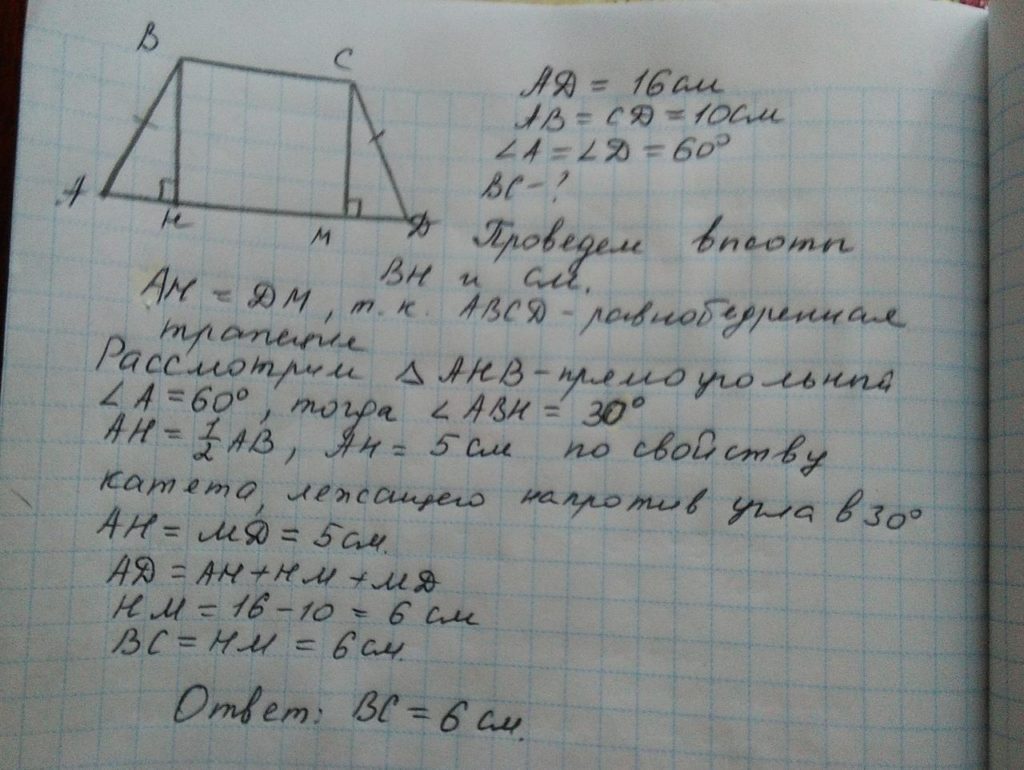 B
C
A
H
M
D
AD = 16 см
AB = CD = 10 см
∠A = ∠D = 60°
BC - ?
Проведем высоты
BH и CM.
AH = DM, т.к. ABCD - равнобедренная
трапеция
Рассмотрим △ AHB - прямоугольный
∠A = 60°, тогда ∠ABH = 30°
AH = 1/2 AB, AH = 5 см по свойству
катета, лежащего напротив угла в 30°
AH = MD = 5 см.
AD = AH + HM + MD
HM = 16 - 10 = 6 см
BC = HM = 6 см.
Ответ: BC = 6 см.